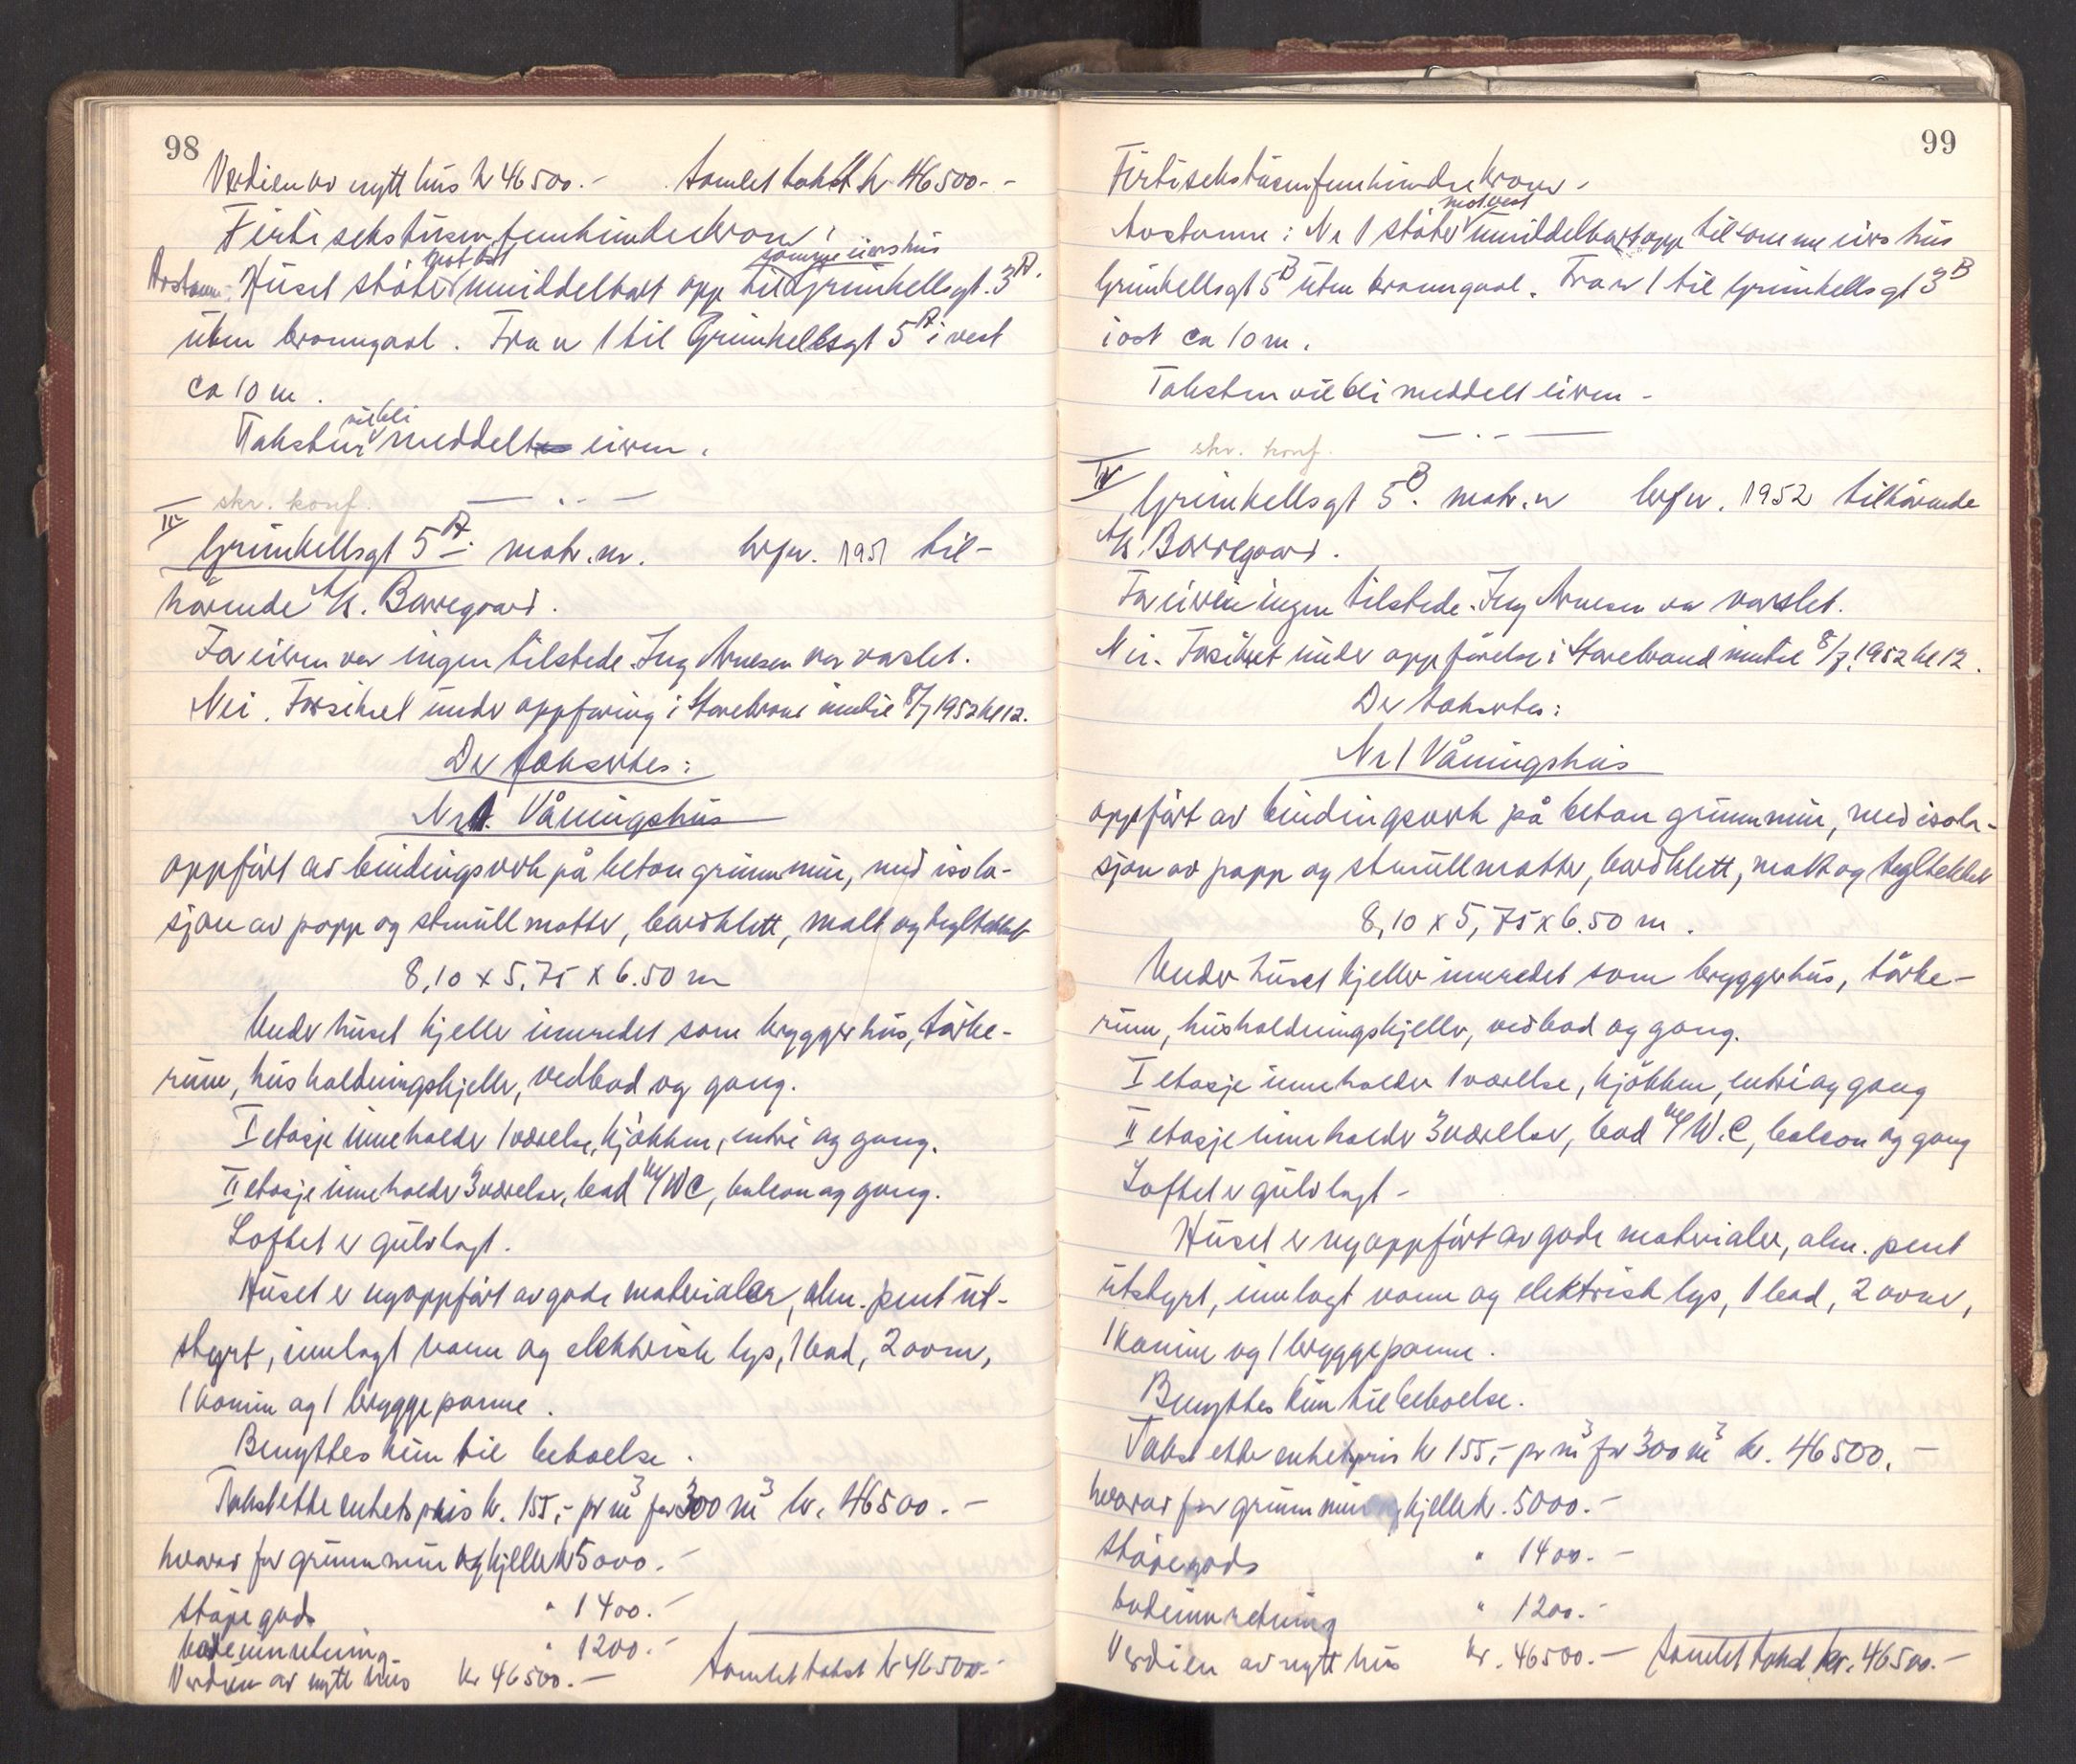 98
Verdien av nytt hus kr 46500.- Samlet takst kr 46500.-
Førtisekstusenfemhundrekroner.
mot øst samme eiers hus
Avstann: Huset støter umiddelbart opp til Grimkellsgt. 3A.
uten branngavl. Fra nr 1 til Grimkellsgt 5A i vest
ca 10 m.
vil bli
Taksten meddelt eieren.
skr. konf.
III Grimkellsgt 5A. matr.nr. brfnr. 1951 til-
hørende A/S. Borregaard.
For eieren var ingen tilstede. Ing Arnesen var varslet.
Nei. Forsikret under oppføring i Storebrand inntil 8/7 1952 kl 12.
Der takseres:
Nr 1. Våningshus
oppført av bindingsverk på betong grunnmur, med isola-
sjon av papp og stenullmatter, bordklett, malt og tegltekket
8,10 x 5,75 x 6.50 m
Under huset kjeller innredet som bryggerhus, tørke-
rum, husholdningskjeller, vedbod og gang.
I etasje inneholder 1 værelse, kjøkken, entre og gang.
II etasje inneholder 3 værelser, bad m/WC, balcon og gang.
Loftet er gulvlagt.
Huset er nyoppført av gode materialer, alm. pent ut-
styrt, innlagt vann og elektrisk lys, 1 bad, 2 ovner,
1 kamin og 1 bryggepanne.
Benyttes kun til beboelse.
Takst etter enhetspris kr. 155,- pr m3 for 300 m3 kr. 46500.-
hvorav for grunnmur og kjeller kr 5000.-
støpegods " 1400.-
badeinnretning " 1200.-
Verdien av nytt hus kr 46500.- Samlet takst kr 46500.-
99
Førtisekstusenfemhundrekroner.
mot vest
Avstann: Nr 1 støter umiddelbart opp til samme eiers hus
Grimkellsgt 5B uten branngavl. Fra nr 1 til Grimkellsgt 3B
i øst ca 10 m.
Taksten vil bli meddelt eieren.
skr. konf.
IV Grimkellsgt 5B. matr.nr brfnr. 1952 tilhørende
A/S. Borregaard.
For eieren ingen tilstede. Ing Arnesen var varslet.
Nei. Forsikret under oppførelse i Storebrand inntil 8/7. 1952 kl 12.
Der takseres:
Nr 1 Våningshus
oppført av bindingsverk på betong grunnmur, med isola-
sjon av papp og stenullmatter, bordklett, malt og tegltekket
8,10 x 5,75 x 6.50 m.
Under huset kjeller innredet som bryggerhus, tørke-
rum, husholdningskjeller, vedbod og gang.
I etasje inneholder 1 værelse, kjøkken, entre og gang
II etasje inneholder 3 værelser, bad m/W.C, balcon og gang
Loftet er gulvlagt.
Huset er nyoppført av gode materialer, alm. pent
utstyrt, innlagt vann og elektrisk lys, 1 bad, 2 ovner,
1 kamin og 1 bryggepanne.
Benyttes kun til beboelse.
Takst etter enhetspris kr 155,- pr m3 for 300 m3 kr. 46500.-
hvorav for grunnmur og kjeller kr. 5000.-
støpegods " 1400.-
badeinnretning " 1200.-
Verdien av nytt hus kr. 46500.- Samlet takst kr. 46500.-